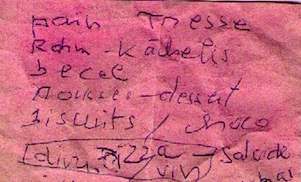 pain Tresse
Rahm-Kächelis
becel
mousses-dessert
biscuits / choco
pizza salade
vin